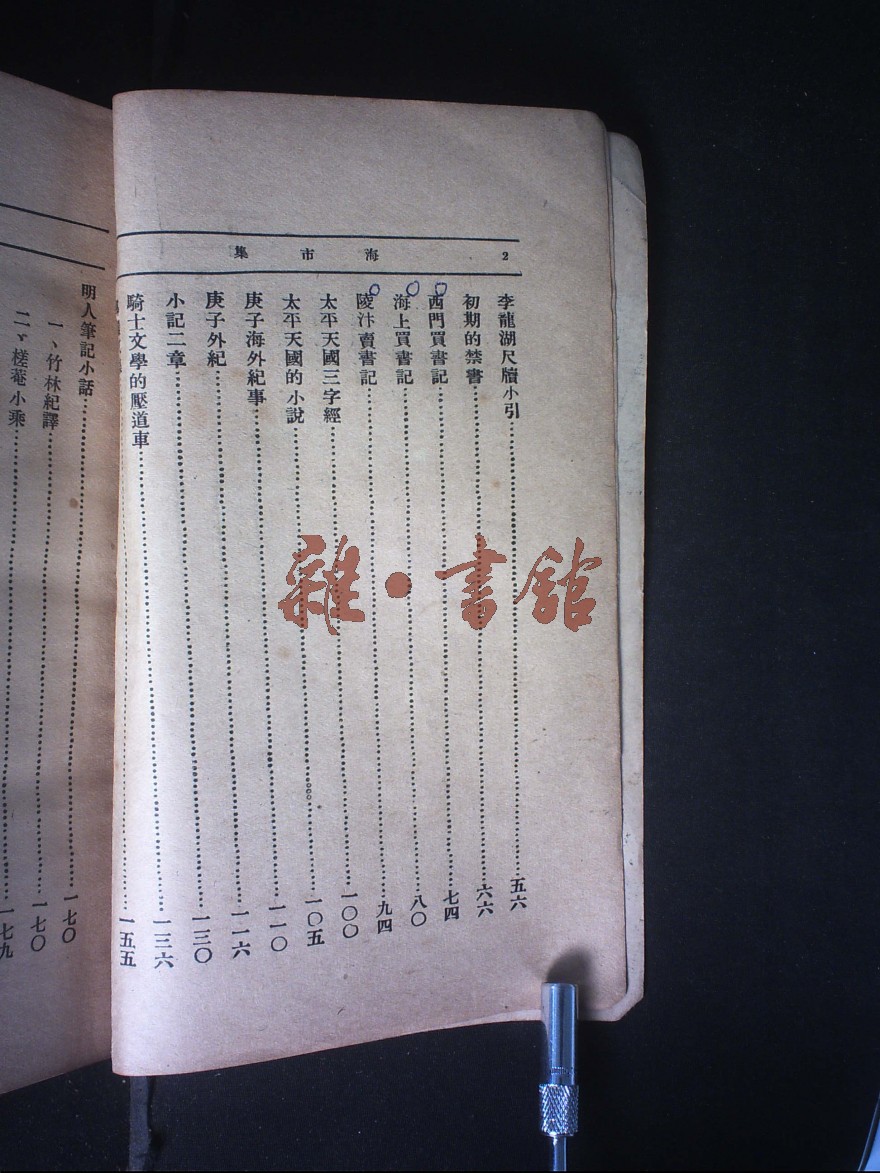 海市集 2
李龍湖尺牘小引 五六
初期的禁書 六六
西門買書記 七四
海上買書記 八〇
陵汴賣書記 九四
太平天國三字經 一〇〇
太平天國的小說 一〇五
庚子海外紀事 一一〇
庚子外紀 一一六
小記二章 一三〇
騎士文學的壓道車 一三六
一五五
明人筆記小話 一七〇
一、竹林紀譯 一七〇
二、槎菴小乘 一七九
雜·書館